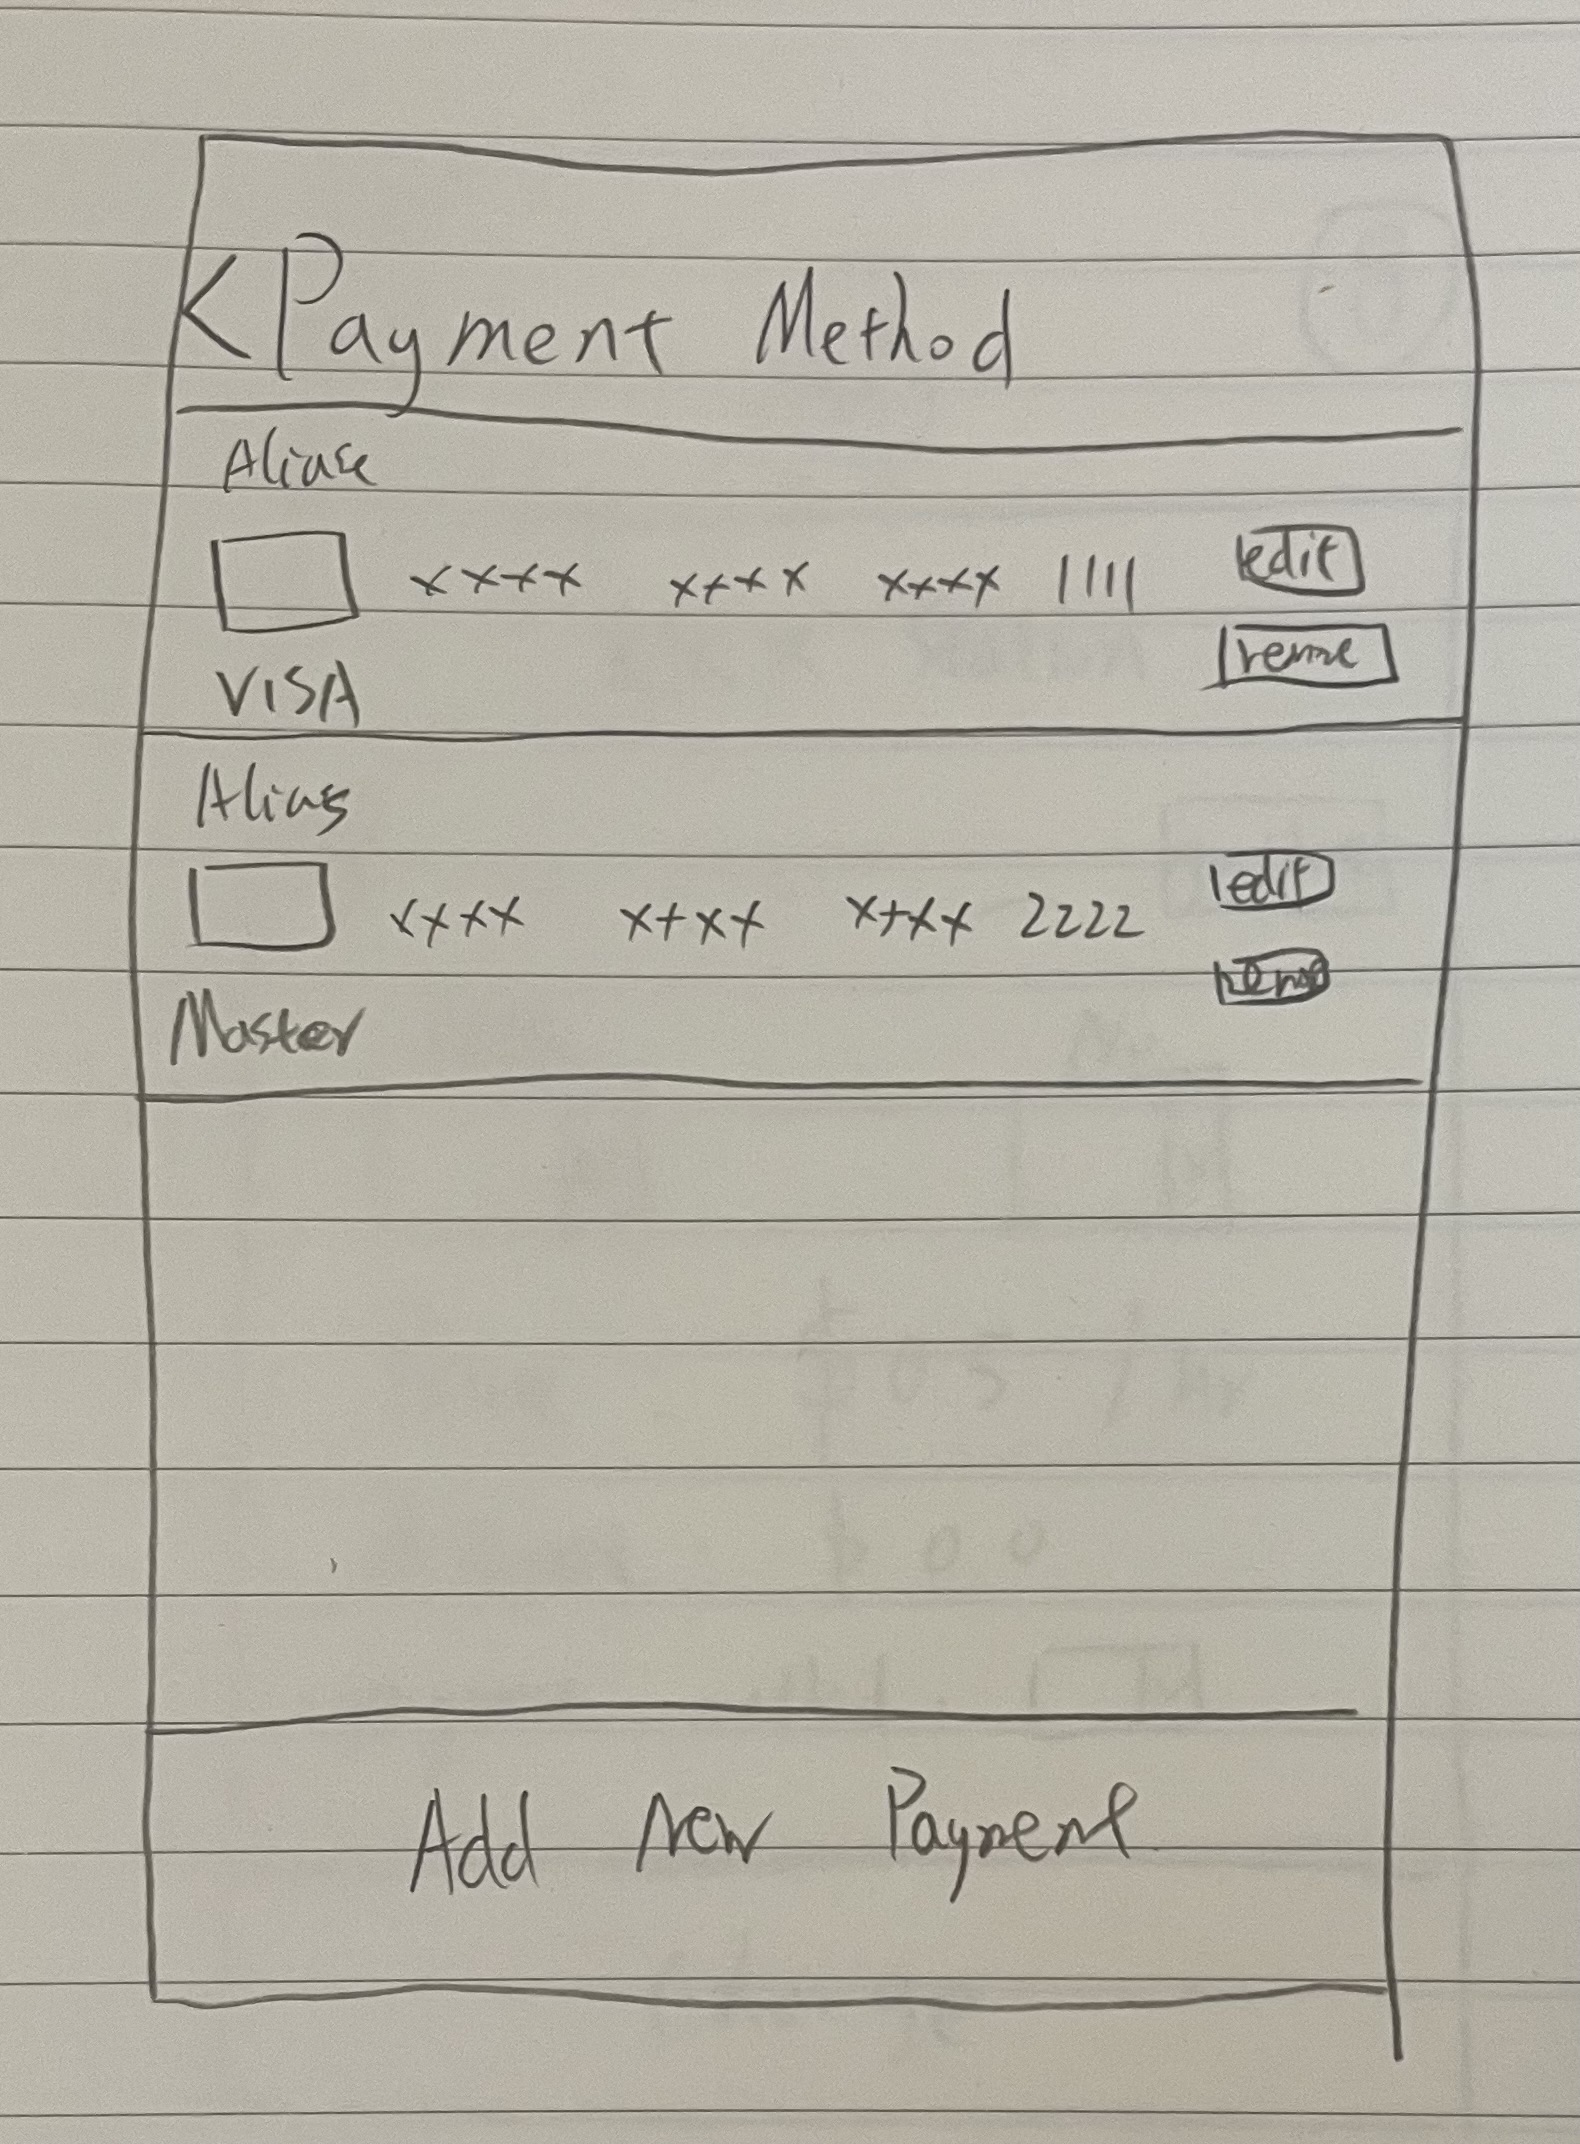 < Payment Method
Aliase
xxxx xxxx xxxx 1111 edit
VISA
Alias
xxxx xxxx xxxx 2222 edit
Master
Add new Payment